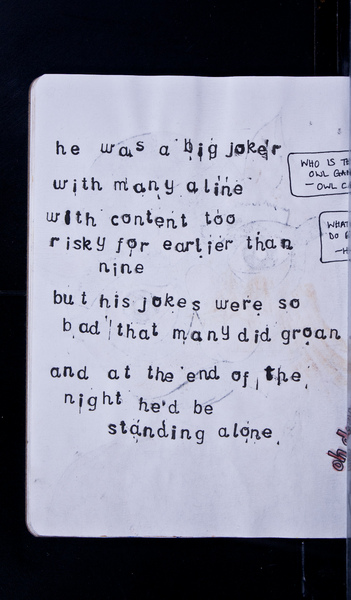 he was a big joker
with many a line
with content too
risky for earlier than
nine
but his jokes were so
bad that many did groan
and at the end of the
night he'd be
standing alone
WHO IS
OWL
- OWL
WHAT
DO
oh